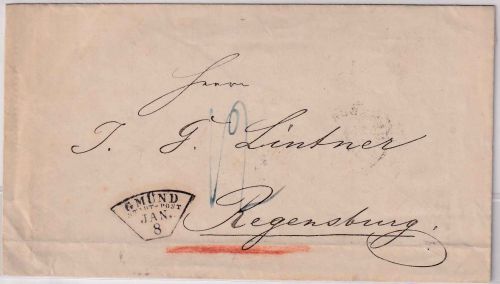 Herrn
J. G. Lintner
Regensburg.
GMÜND
STADT-POST
JAN.
8